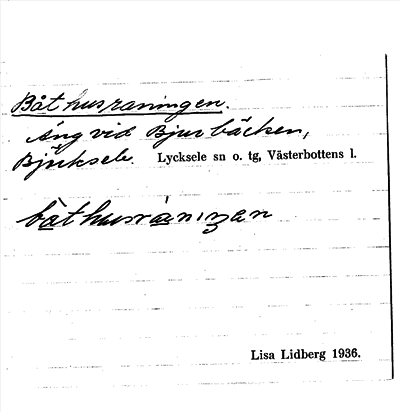 Båthusraningen.
Äng vid Bjurbäcken,
Bjurksele. Lycksele sn o. tg, Västerbottens l.
båthusra̱nıŋen
Lisa Lidberg 1936.